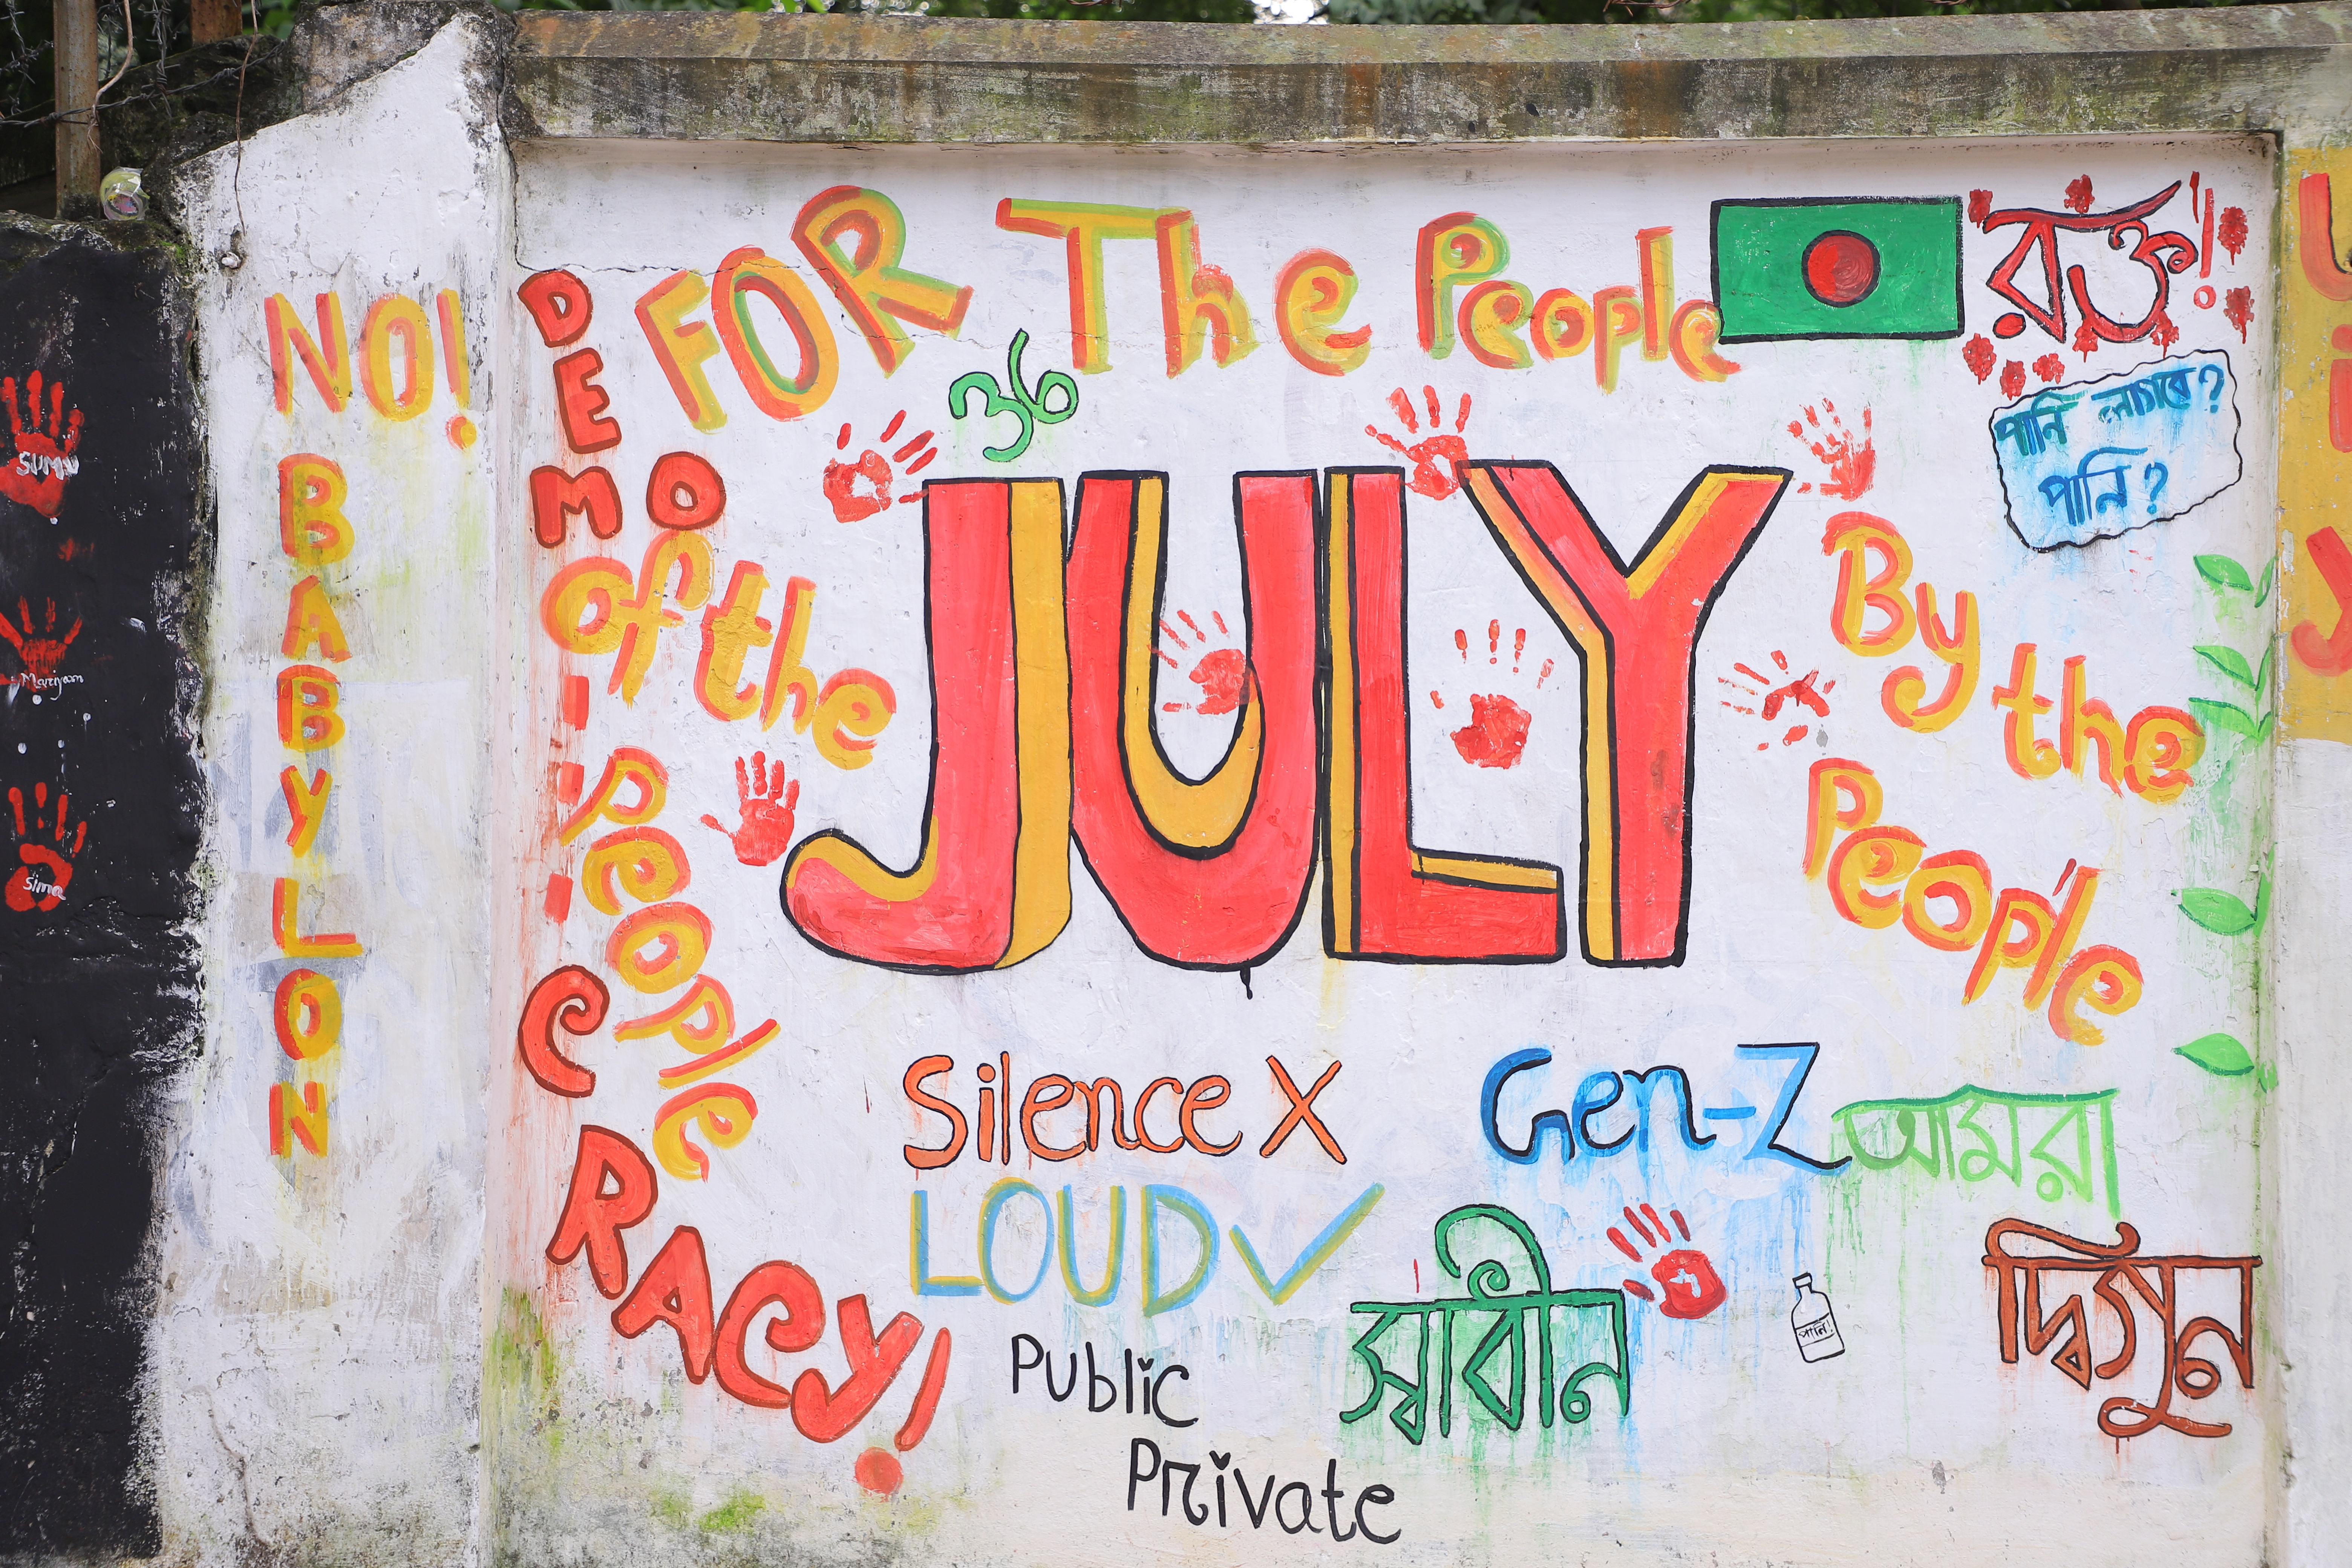 NO!
BABYLON
DEMOCRACY!
FOR The People
of the
People
By the
People
36
JULY
রক্ত!
পানি লাগবে?
পানি?
Silence X
LOUD ✓
Gen-Z
আমরা
স্বাধীন
দ্বিগুন
পানি!
Public
Private
SUMU
Mariyam
Sima